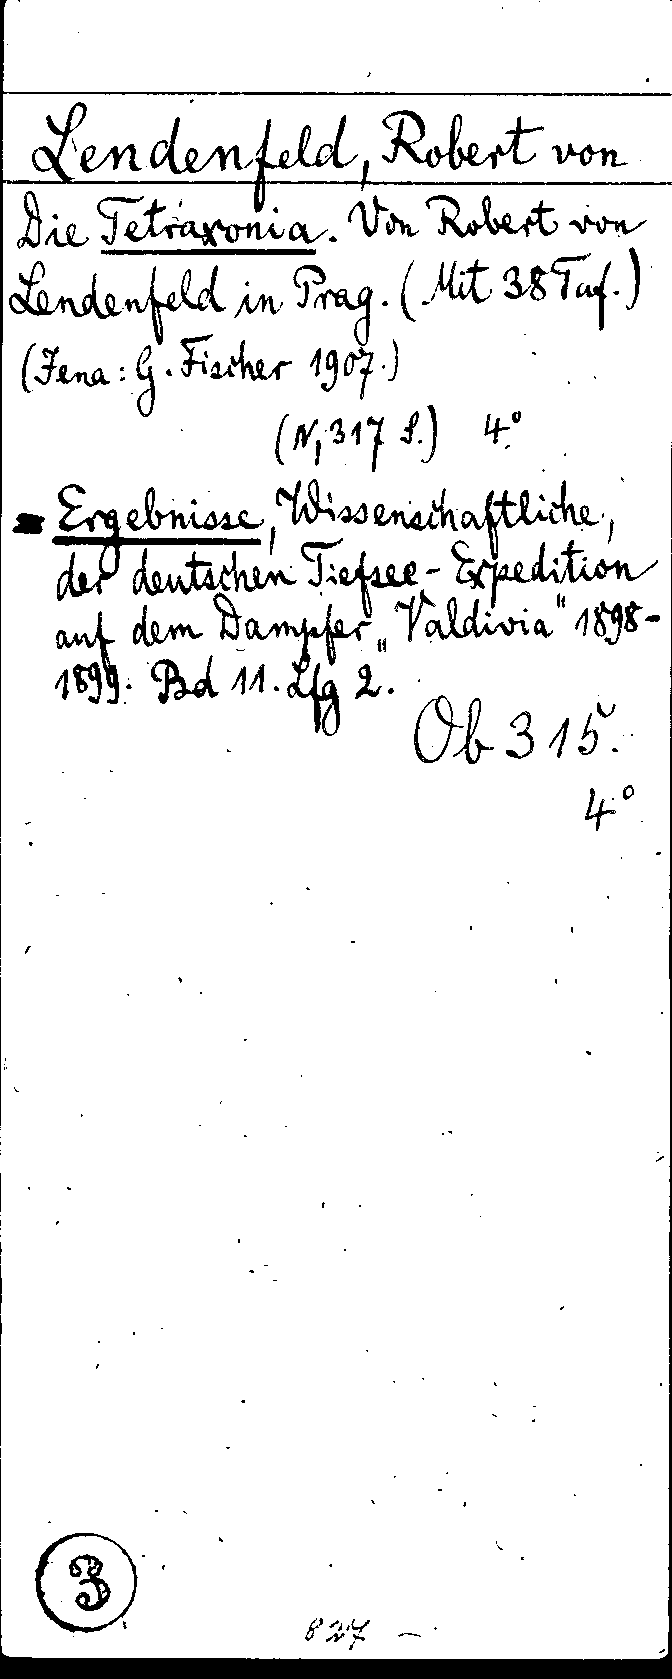 Lendenfeld, Robert von
Die Tetraxonia. Von Robert von
Lendenfeld in Prag. (Mit 38 Taf.)
(Jena: G. Fischer 1907.)
(IV, 317 S.) 4°
= Ergebnisse, Wissenschaftliche,
der deutschen Tiefsee-Expedition
auf dem Dampfer „Valdivia" 1898-
1899. Bd 11. Lfg 2.
Ob 315.
4°
3
827 -